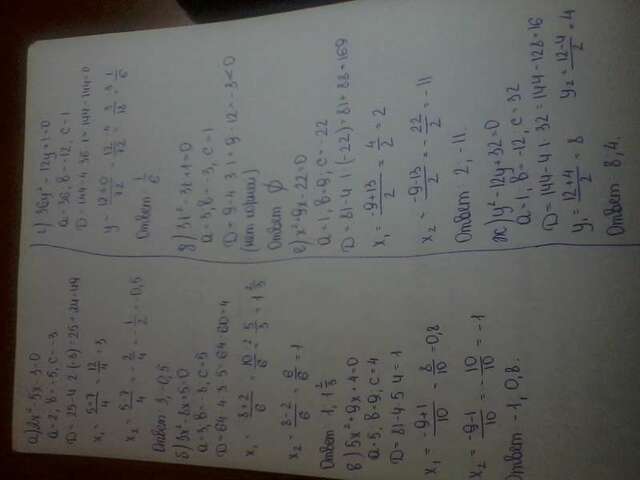 а) 2x² 5x-3=0
a=2, в=-5, c=-3
D=25-4 2 (-3)=25+24=49
x₁ = 5+7/4 = 12/4 = 3
x₂ = 5-7/4 = -2/4 = -1/2 = -0,5
Ответ 3, -0,5
б) 3x² 8x+5=0
a=3, в=-8, c=5
D=64-4 3 5=64-60=4
x₁ = 8+2/6 = 10/6 = 5/3 = 1 2/3
x₂ = 8-2/6 = 6/6 = 1
Ответ 1, 1 2/3
в) 5x²+9x+4=0
a=5, в=9, c=4
D=81-4 5 4=1
x₁ = -9+1/10 = -8/10 = 0,8
x₂ = -9-1/10 = -10/10 = -1
Ответ -1, 0,8.
г) 36y² 12y+1=0
a=36, в=-12, c=1
D=144-4 36 1=144-144=0
y = 12±0/72
Ответ 1/6
д) 3t²-3t+1=0
a=3, в=-3, c=1
D=9-4 3 1=9-12=-3<0
(нет корней)
Ответ ∅
е) x²+9x-22=0
a=1, в=9, c=-22
D=81-4 1 (-22)=81+88=169
x₁ = -9+13/2 = 4/2 = 2
x₂ = -9-13/2 = -22/2 = -11
Ответ 2, -11.
ж) y²-12y+32=0
a=1, в=-12, c=32
D=144-4 1 32=144-128=16
y₁ = 12+4/2 = 8 y₂ = 12-4/2 = 4
Ответ 8, 4.